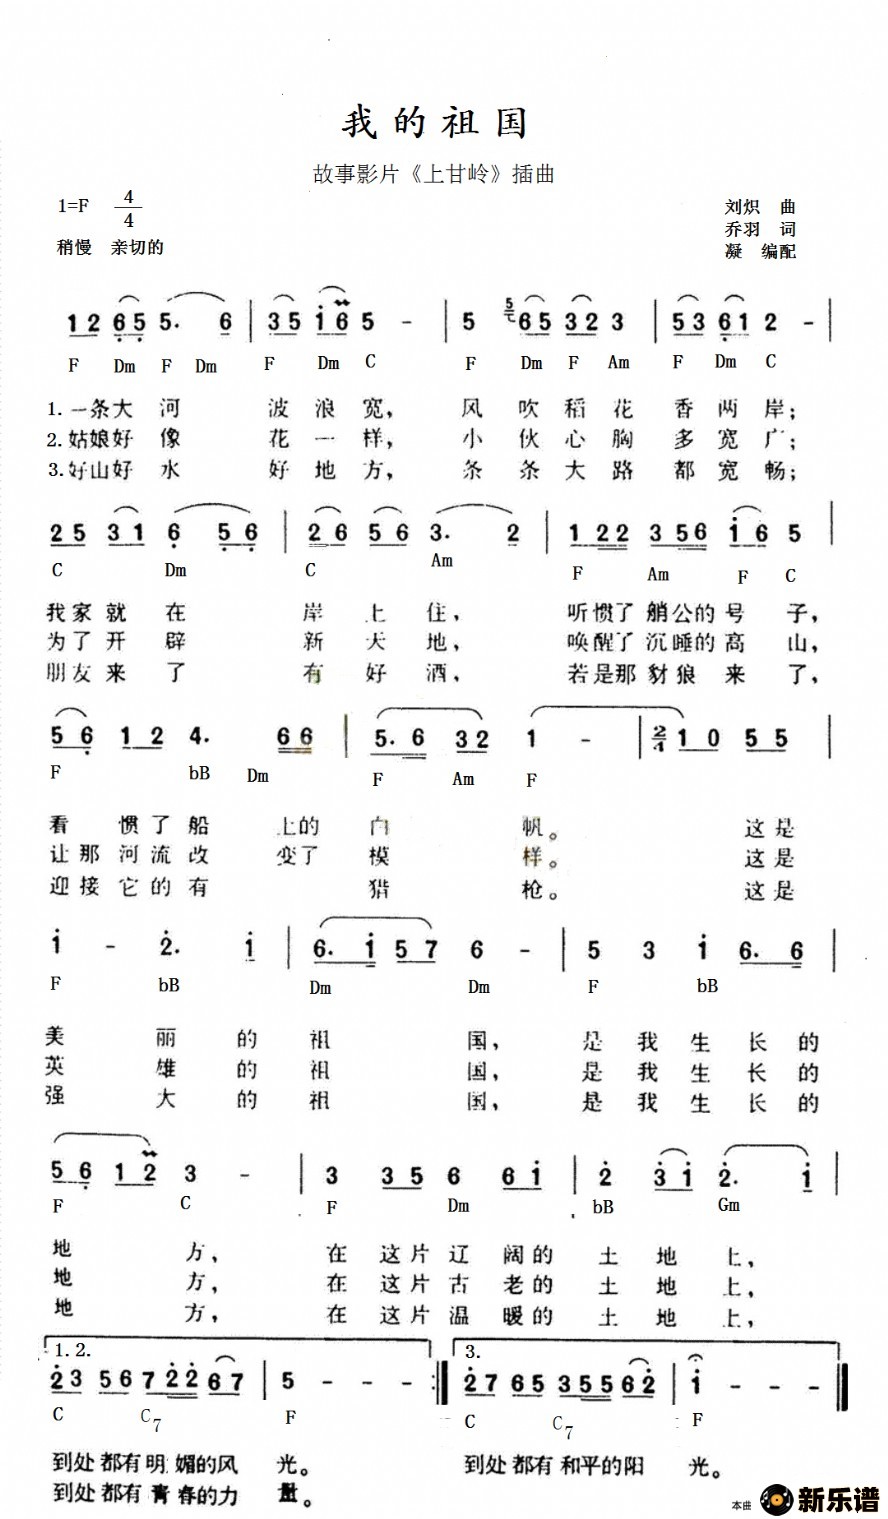 我的祖国
故事影片《上甘岭》插曲
1=F 4/4
刘炽 曲
稍慢 亲切的
乔羽 词
凝 编配
1 2 6 5 5. 6 | 3 5 i 6 5 - | 5 5/元 6 5 3 2 3 | 5 3 6 1 2 - |
F Dm F Dm F Dm C F Dm F Am F Dm C
1.一条大 河 波 浪 宽， 风 吹 稻 花 香 两 岸；
2.姑娘好 像 花 一 样， 小 伙 心 胸 多 宽 广；
3.好山好 水 好 地 方， 条 条 大 路 都 宽 畅；
2 5 3 1 6 5 6 | 2 6 5 6 3. 2 | 1 2 2 3 5 6 i 6 5 |
C Dm C Am F Am F C
我家 就 在 岸 上 住， 听惯了 艄公的 号 子，
为了 开 辟 新 天 地， 唤醒了 沉睡的 高 山，
朋友 来 了 有 好 酒， 若是那 豺狼 来 了，
5 6 1 2 4. 6 6 | 5. 6 3 2 1 - | 2/4 1 0 5 5 |
F bB Dm F Am F
看 惯了 船 上的 白 帆。 这是
让那 河流 改 变了 模 样。 这是
迎接 它的 有 猎 枪。 这是
i - 2. i | 6. i 5 7 6 - | 5 3 i 6. 6 |
F bB Dm Dm F bB
美 丽 的 祖 国， 是 我 生 长 的
英 雄 的 祖 国， 是 我 生 长 的
强 大 的 祖 国， 是 我 生 长 的
5 6 1 2 3 - | 3 3 5 6 6 i | 2 3 i 2. i |
F C F Dm bB Gm
地 方， 在 这片 辽 阔的 土 地 上，
地 方， 在 这片 古 老的 土 地 上，
地 方， 在 这片 温 暖的 土 地 上，
1.2. 3.
2 3 5 6 7 2 2 6 7 | 5 - - - :‖ 2 7 6 5 3 5 5 6 2 | i - - - ‖
C C7 F C C7 F
到处 都有 明 媚的风 光。 到处 都有 和平的阳 光。
到处 都有 青 春的力 量。
本曲 新乐谱